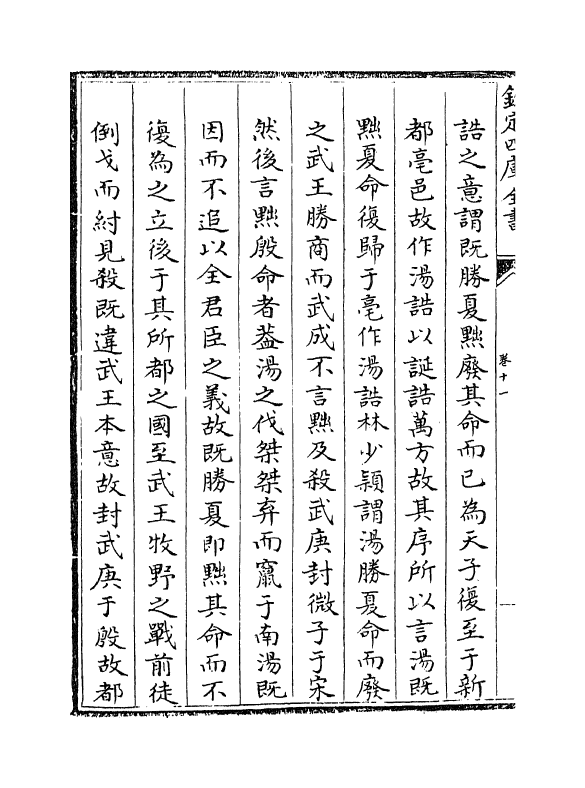 欽定四庫全書
卷十一
誥之意謂既勝夏黜廢其命而已為天子復至于新
都亳邑故作湯誥以誕誥萬方故其序所以言湯既
黜夏命復歸于亳作湯誥林少穎謂湯勝夏命而廢
之武王勝商而武成不言黜及殺武庚封微子于宋
然後言黜殷命者葢湯之伐桀桀弃而竄于南湯既
因而不追以全君臣之義故既勝夏即黜其命而不
復為之立後于其所都之國至武王牧野之戰前徒
倒戈而紂見殺既違武王本意故封武庚于殷故都